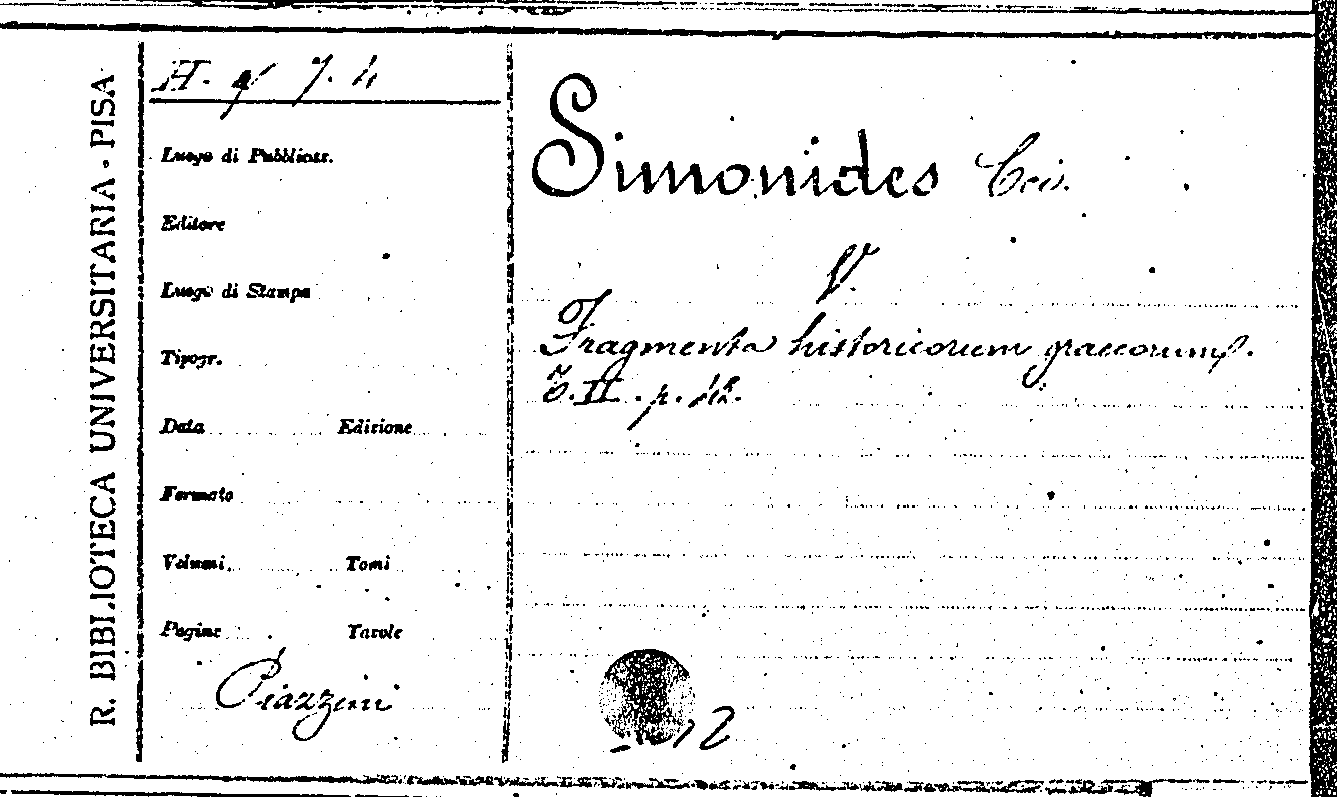 R. BIBLIOTECA UNIVERSITARIA - PISA
H. q 7. 4
Luogo di Pubblicaz.
Editore
Luogo di Stampa
Tipogr.
Data Edizione
Formato
Volumi Tomi
Pagine Tavole
Piazzini
Simonides Ceo.
V.
Fragmenta historicorum graecorum.
T. II. p. 42.
12